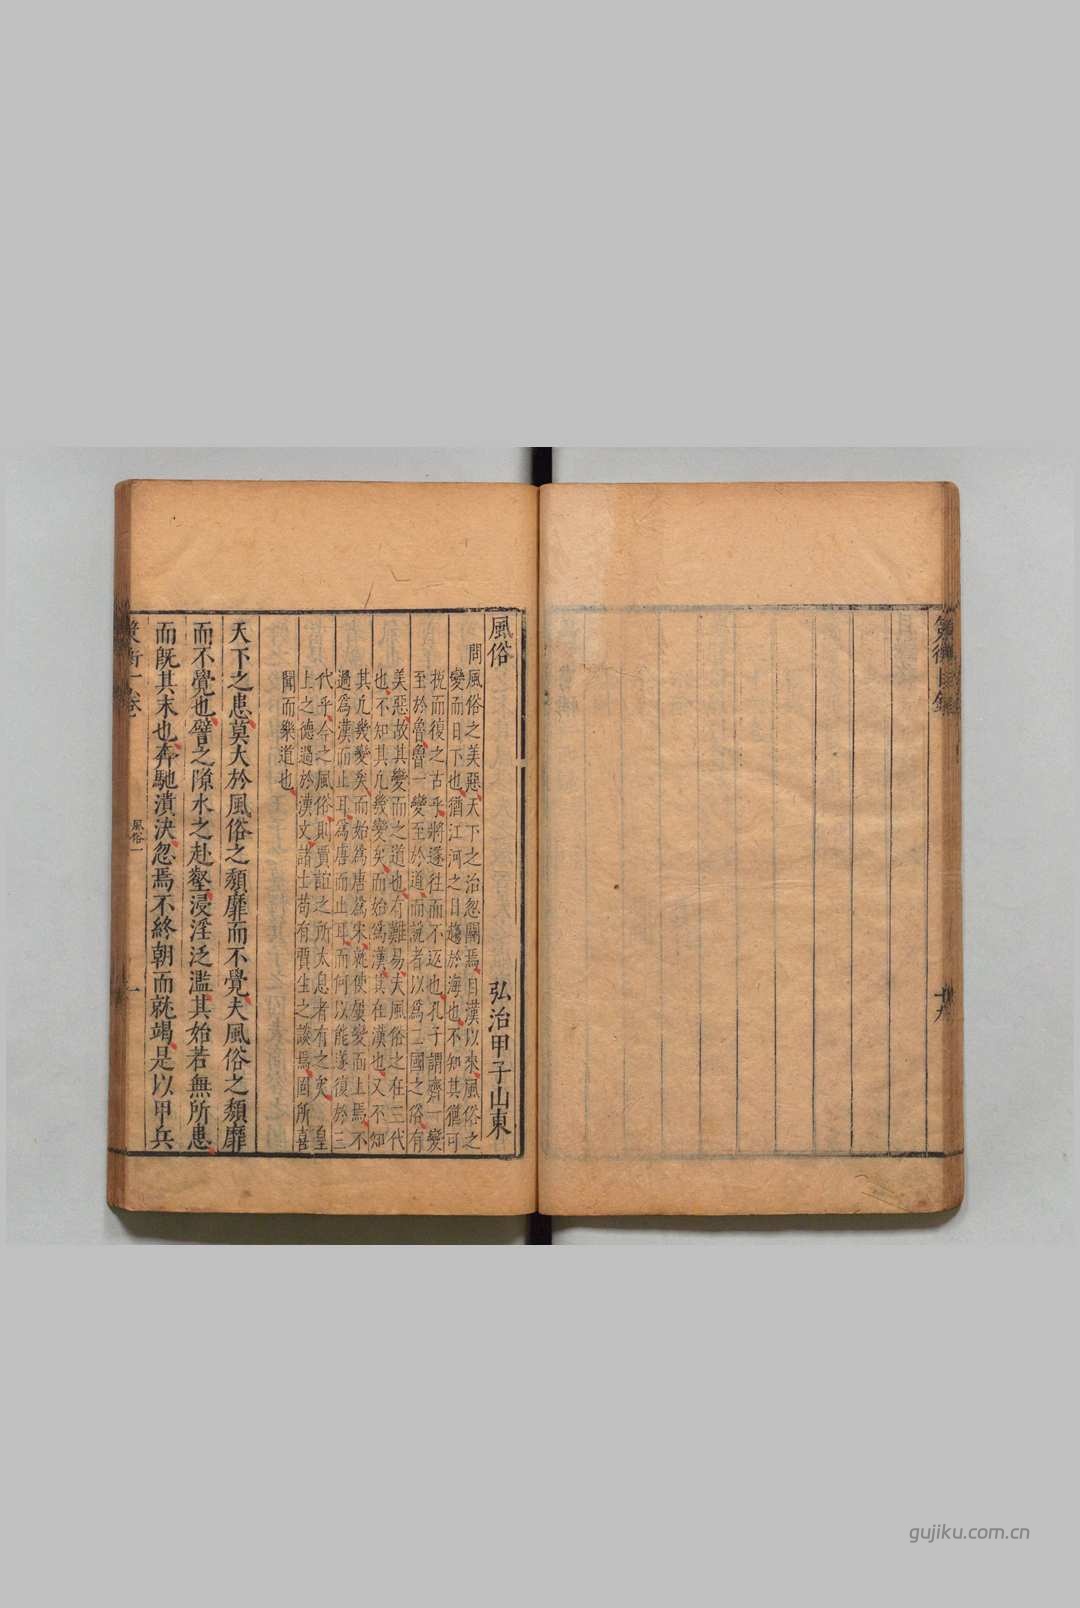 風俗　弘治甲子山東
問風俗之美惡天下之治忽關焉自漢以來風俗之
變而日下也猶江河之日趨於海也不知其猶可
挽而復之古乎將遂往而不返也孔子謂齊一變
至於魯魯一變至於道而說者以爲二國之俗有
美惡故其變而之道也有難易夫風俗之在三代
也不知其凡幾變矣而始爲漢其在漢也又不知
其凡幾變矣而始爲唐爲宋就使屢變而上焉不
過爲漢而止耳爲唐而止耳而何以能遂復於三
代乎今之風俗則賈誼之所太息者有之矣　皇
上之德過於漢文諸士苟有賈生之談焉固所喜
聞而樂道也
天下之患莫大於風俗之頹靡而不覺夫風俗之頹靡
而不覺也譬之隙水之赴壑浸淫泛濫其始若無所患
而旣其末也奔馳潰決忽焉不終朝而就竭是以甲兵
風俗一
一
十九
gujiku.com.cn